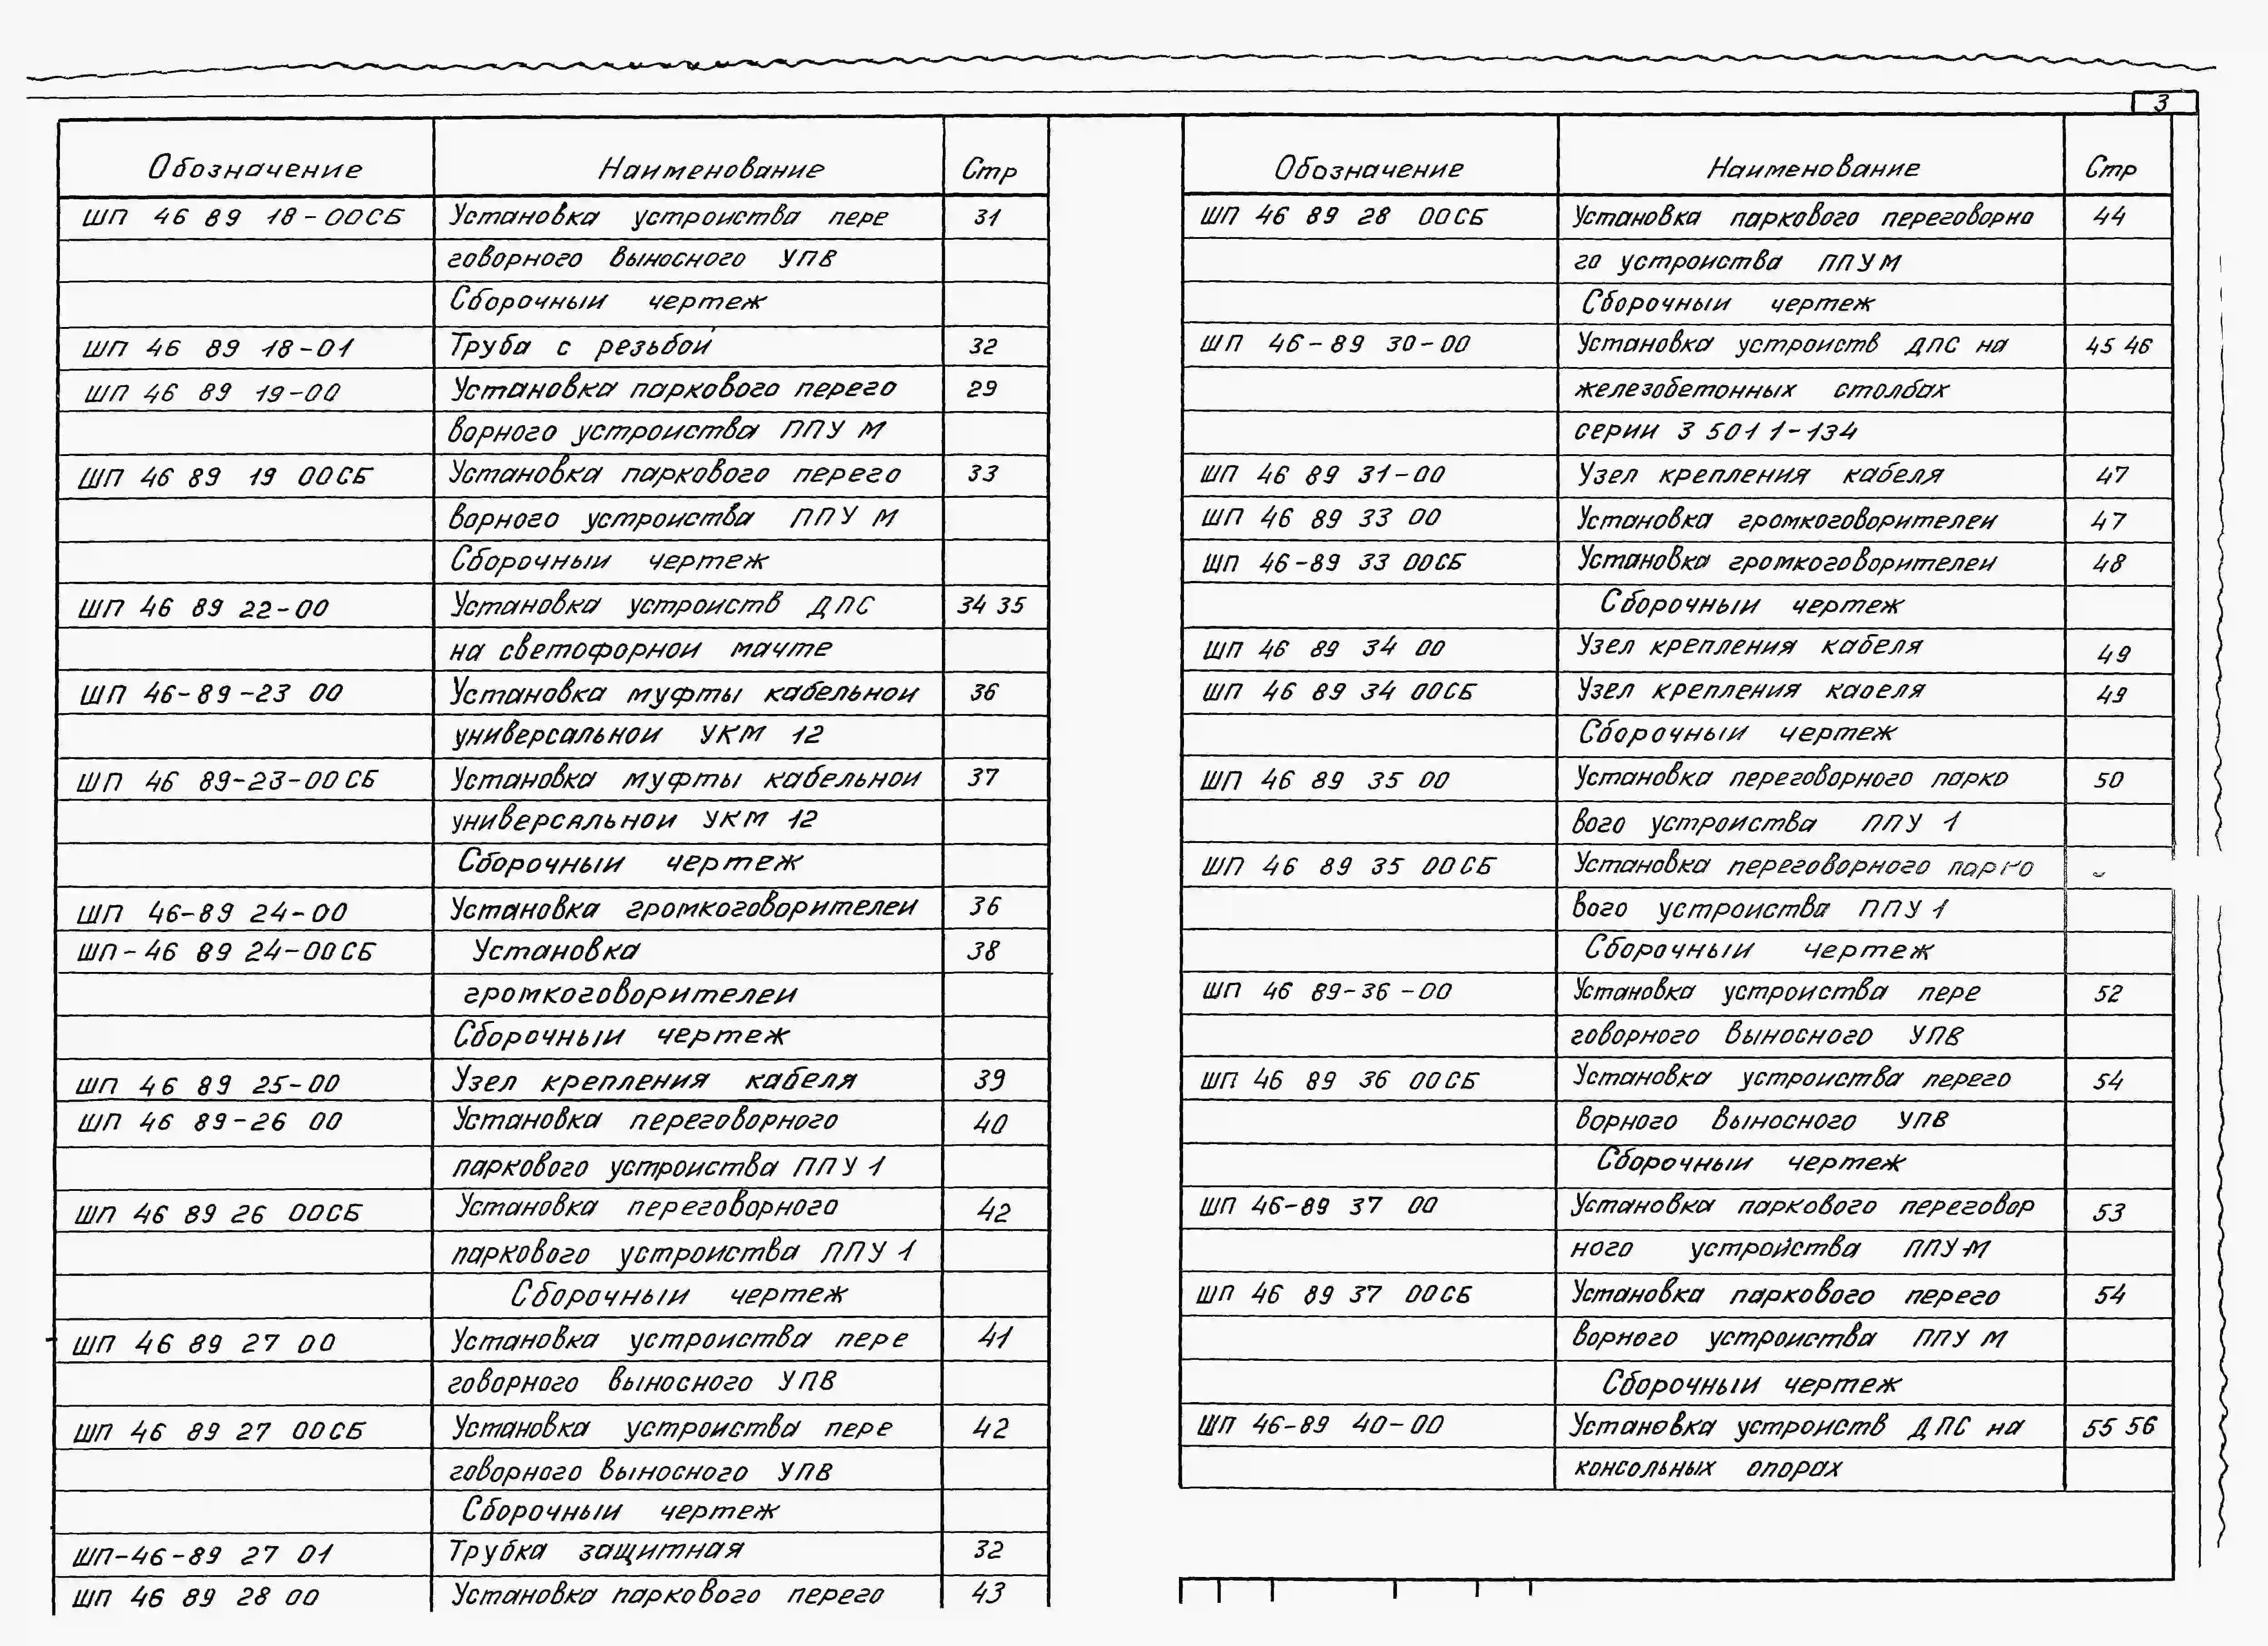 3
Обозначение Наименование Стр
ШП 46 89 18-00СБ Установка устроиства пере 31
говорного выносного УПВ
Сборочныи чертеж
ШП 46 89 18-01 Труба с резьбой 32
ШП 46 89 19-00 Установка паркового перего 29
ворного устроиства ППУ М
ШП 46 89 19 00СБ Установка паркового перего 33
ворного устроиства ППУ М
Сборочныи чертеж
ШП 46 89 22-00 Установка устроиств ДПС 34 35
на светофорнои мачте
ШП 46-89-23 00 Установка муфты кабельнои 36
универсальнои УКМ 12
ШП 46 89-23-00СБ Установка муфты кабельнои 37
универсальнои УКМ 12
Сборочныи чертеж
ШП 46-89 24-00 Установка громкоговорителеи 36
ШП-46 89 24-00СБ Установка 38
громкоговорителеи
Сборочныи чертеж
ШП 46 89 25-00 Узел крепления кабеля 39
ШП 46 89-26 00 Установка переговорного 40
паркового устроиства ППУ 1
ШП 46 89 26 00СБ Установка переговорного 42
паркового устроиства ППУ 1
Сборочныи чертеж
ШП 46 89 27 00 Установка устроиства пере 41
говорного выносного УПВ
ШП 46 89 27 00СБ Установка устроиства пере 42
говорного выносного УПВ
Сборочныи чертеж
ШП-46-89 27 01 Трубка защитная 32
ШП 46 89 28 00 Установка паркового перего 43
Обозначение Наименование Стр
ШП 46 89 28 00СБ Установка паркового переговорно 44
го устроиства ППУ М
Сборочныи чертеж
ШП 46-89 30-00 Установка устроиств ДПС на 45 46
железобетонных столбах
серии 3 501 1-134
ШП 46 89 31-00 Узел крепления кабеля 47
ШП 46 89 33 00 Установка громкоговорителеи 47
ШП 46-89 33 00СБ Установка громкоговорителеи 48
Сборочныи чертеж
ШП 46 89 34 00 Узел крепления кабеля 49
ШП 46 89 34 00СБ Узел крепления кабеля 49
Сборочныи чертеж
ШП 46 89 35 00 Установка переговорного парко 50
вого устроиства ППУ 1
ШП 46 89 35 00СБ Установка переговорного парко
вого устроиства ППУ 1
Сборочныи чертеж
ШП 46 89-36-00 Установка устроиства пере 52
говорного выносного УПВ
ШП 46 89 36 00СБ Установка устроиства перего 54
ворного выносного УПВ
Сборочныи чертеж
ШП 46-89 37 00 Установка паркового переговор 53
ного устройства ППУ-М
ШП 46 89 37 00СБ Установка паркового перего 54
ворного устроиства ППУ М
Сборочныи чертеж
ШП 46-89 40-00 Установка устроиств ДПС на 55 56
консольных опорах